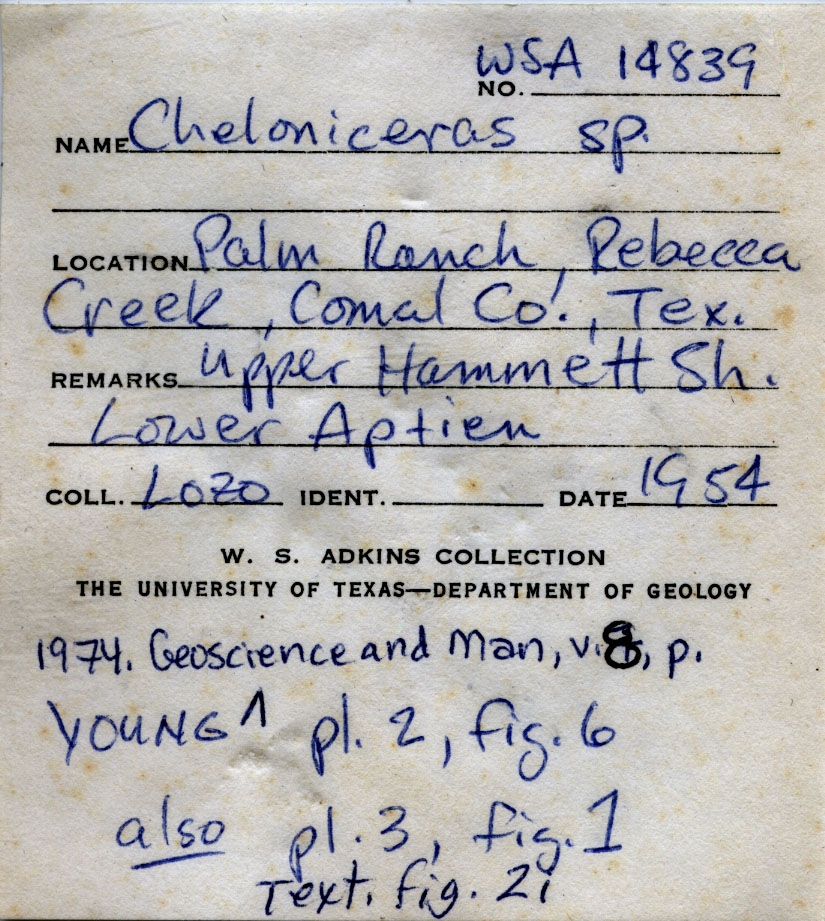 WSA 14839
NO.
NAME Cheloniceras sp.
LOCATION Palm Ranch, Rebecca
Creek, Comal Co., Tex.
REMARKS Upper Hammett Sh.
Lower Aptien
COLL. Lozo IDENT. DATE 1954
W. S. ADKINS COLLECTION
THE UNIVERSITY OF TEXAS—DEPARTMENT OF GEOLOGY
1974. Geoscience and Man, v. 8, p.
YOUNG ^ pl. 2, fig. 6
also pl. 3, fig. 1
Text. fig. 2i